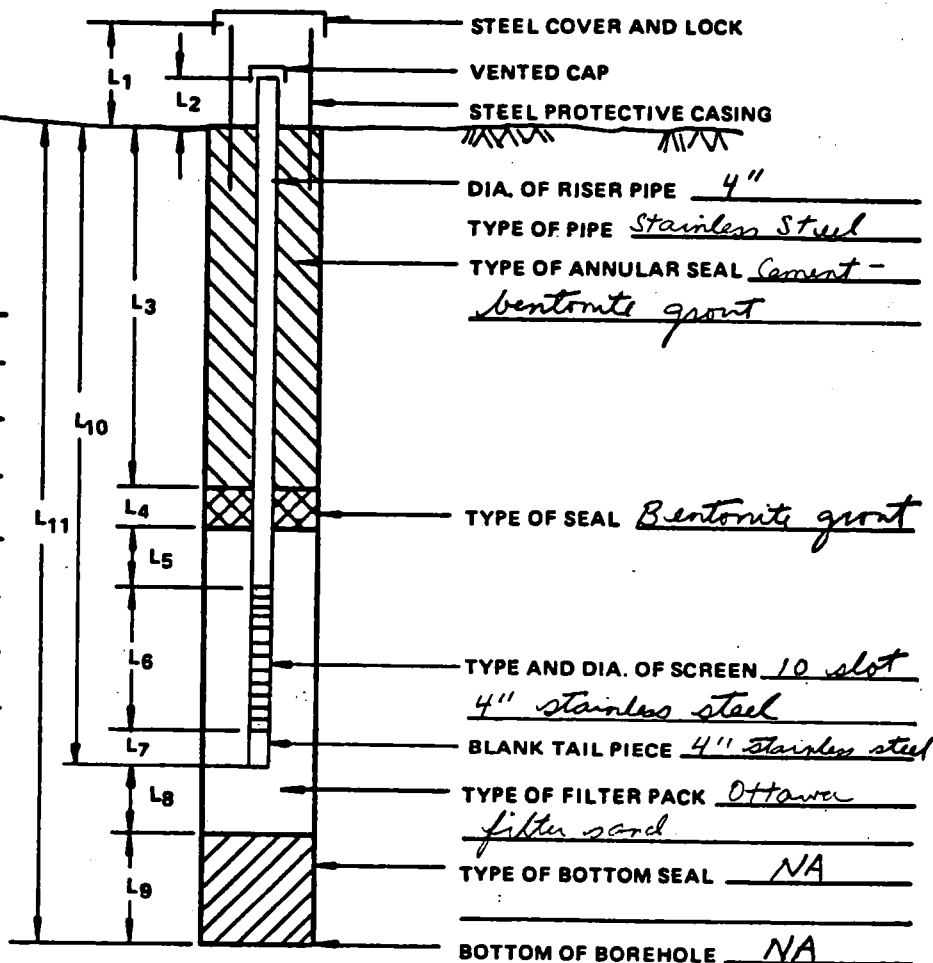 STEEL COVER AND LOCK
L1
VENTED CAP
L2
STEEL PROTECTIVE CASING
DIA. OF RISER PIPE 4"
TYPE OF PIPE Stainless Steel
TYPE OF ANNULAR SEAL Cement-
bentonite grout
L3
L10
L11
L4
TYPE OF SEAL Bentonite grout
L5
L6
TYPE AND DIA. OF SCREEN 10 slot
4" stainless steel
L7
BLANK TAIL PIECE 4" stainless steel
L8
TYPE OF FILTER PACK Ottawa
filter sand
TYPE OF BOTTOM SEAL NA
L9
BOTTOM OF BOREHOLE NA